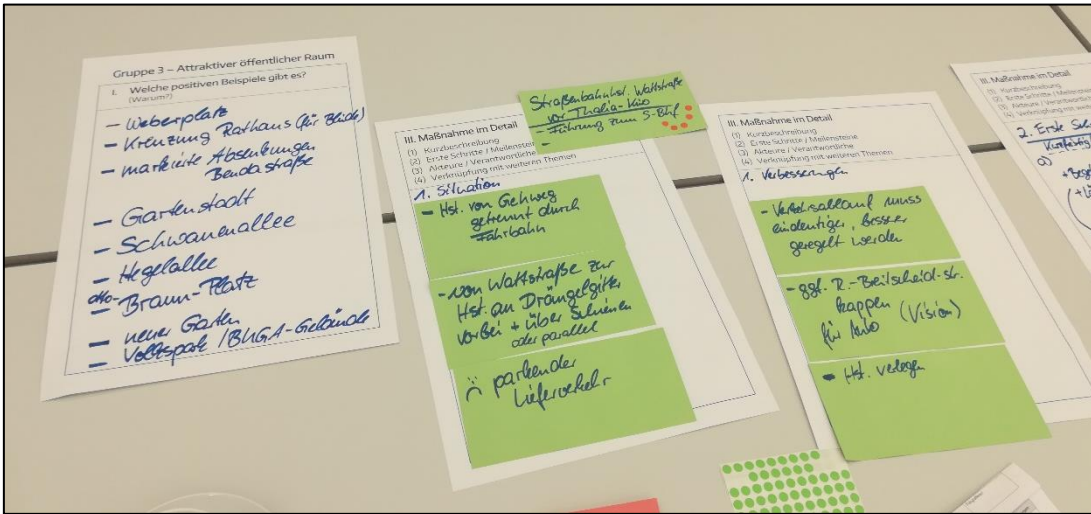 Gruppe 3 – Attraktiver öffentlicher Raum
I. Welche positiven Beispiele gibt es?
(Warum?)
- Weberplatz
- Kreuzung Rathaus (für Blinde)
- markierte Absenkungen
Bendastraße
- Gartenstadt
- Schwanenallee
- Hegelallee
- Otto-Braun-Platz
- neuer Garten
- Volkspark / BUGA-Gelände
Straßenbahnhst. Wattstraße
vor Thalia-Kino
- Führung zum S-Bhf
-
III. Maßnahme im Detail
(1) Kurzbeschreibung
(2) Erste Schritte / Meilensteine
(3) Akteure / Verantwortliche
(4) Verknüpfung mit weiteren Themen
1. Situation
- Hst. von Gehweg
getrennt durch
Fahrbahn
- von Wattstraße zur
Hst. an Drängelgitter
vorbei + über Schienen
oder parallel
parkender
Lieferverkehr
III. Maßnahme im Detail
(1) Kurzbeschreibung
(2) Erste Schritte / Meilensteine
(3) Akteure / Verantwortliche
(4) Verknüpfung mit weiteren Themen
1. Verbesserungen
- Verkehrsablauf muss
eindeutiger, besser
geregelt werden
- ggf. R.-Breitscheid-Str.
kappen
für Auto (Vision)
- Hst. verlegen
III. Maßnahme im Detail
(1) Kurzbeschreibung
(2) Erste Schritte / Meilensteine
(3) Akteure / Verantwortliche
(4) Verknüpfung mit
2. Erste
a)